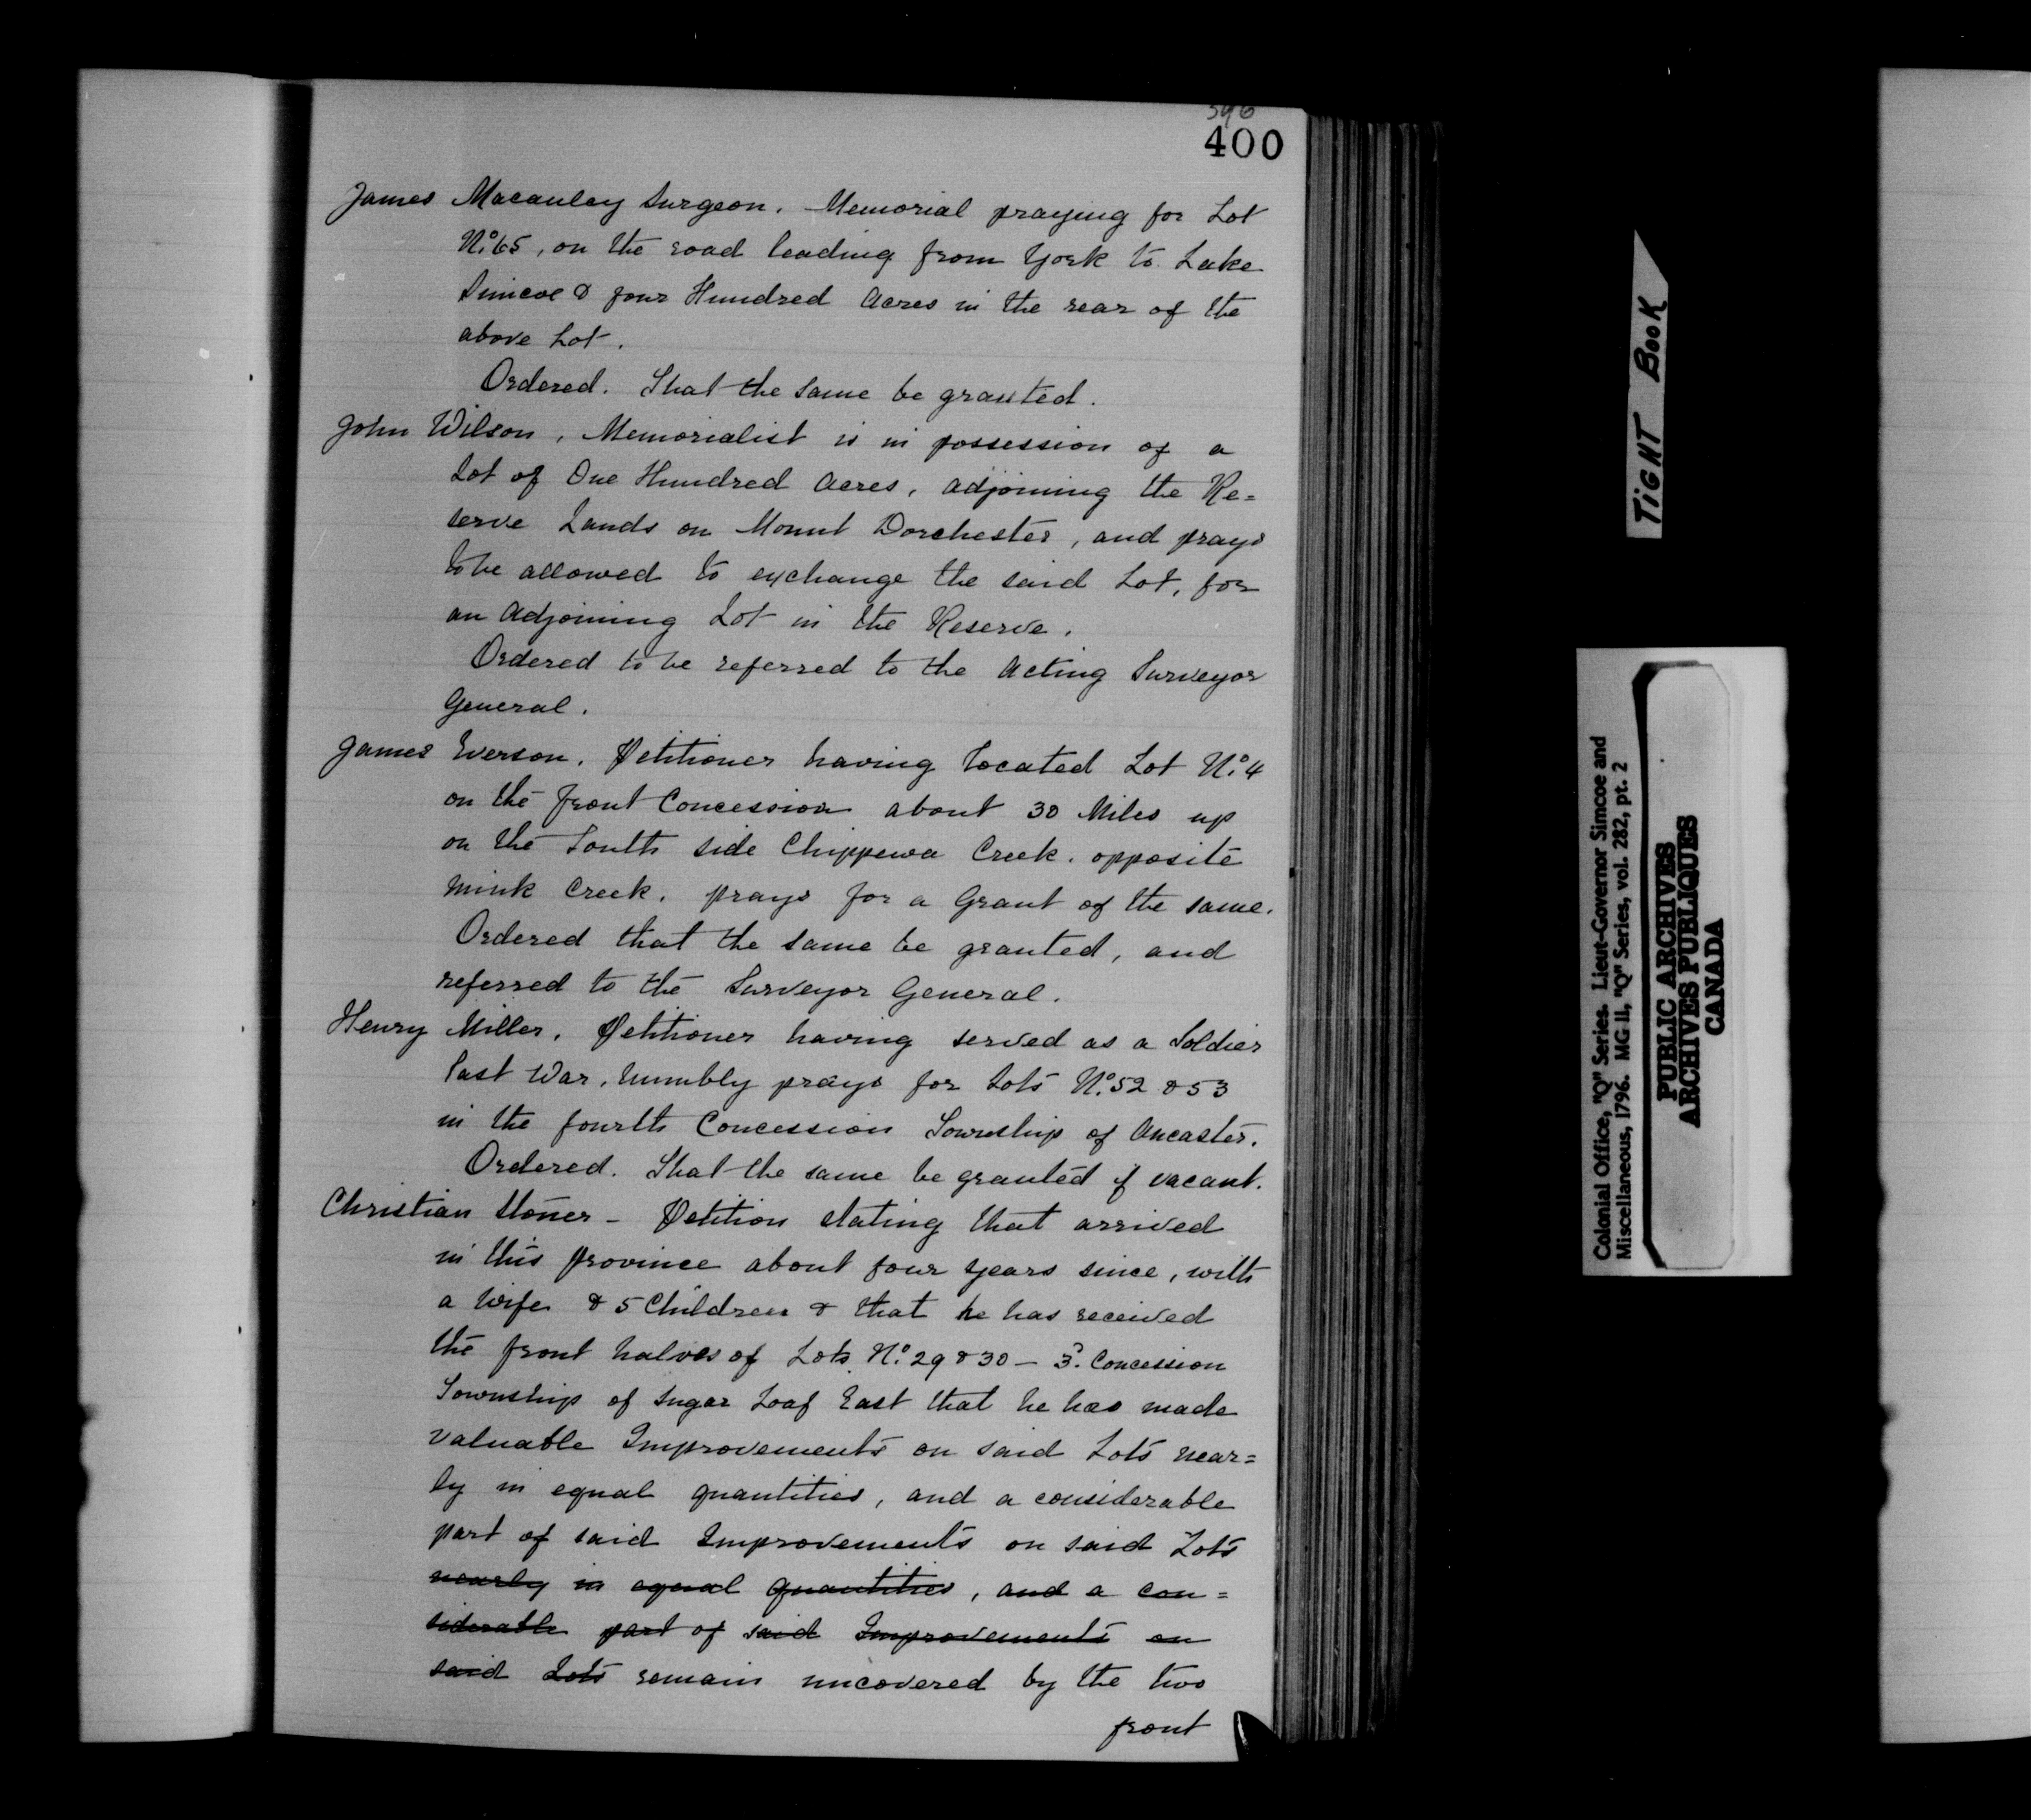 396
400
James Macauley Surgeon. Memorial praying for Lot
No. 65, on the road leading from York to Lake
Simcoe & four Hundred Acres in the rear of the
above Lot.
Ordered. That the same be granted.
John Wilson, Memorialist is in possession of a
Lot of One Hundred Acres, adjoining the Re=
serve Lands on Mount Dorchester, and prays
to be allowed to exchange the said Lot, for
an Adjoining Lot in the Reserve.
Ordered to be referred to the Acting Surveyor
General.
James Everson. Petitioner having located Lot No. 4
on the front Concession about 30 Miles up
on the South side Chippewa Creek. opposite
Mink Creek. prays for a Grant of the same.
Ordered that the same be granted, and
referred to the Surveyor General.
Henry Miller. Petitioner having served as a Soldier
last War, humbly prays for Lots No. 52 & 53
in the fourth Concession Township of Ancaster.
Ordered. That the same be granted if vacant.
Christian Stoner - Petition stating that arrived
in this province about four years since, with
a Wife & 5 Children & that he has received
the front halves of Lots No. 29 & 30 - 3d. Concession
Township of Sugar Loaf East that he has made
valuable Improvements on said Lots near=
ly in equal quantities, and a considerable
part of said Improvements on said Lots
nearly in equal quantities, and a con=
siderable part of said Improvements on
said Lots remain uncovered by the two
front
TIGHT BOOK
Colonial Office, "Q" Series. Lieut-Governor Simcoe and
Miscellaneous, 1796. MG 11, "Q" Series, vol. 282, pt. 2
PUBLIC ARCHIVES
ARCHIVES PUBLIQUES
CANADA